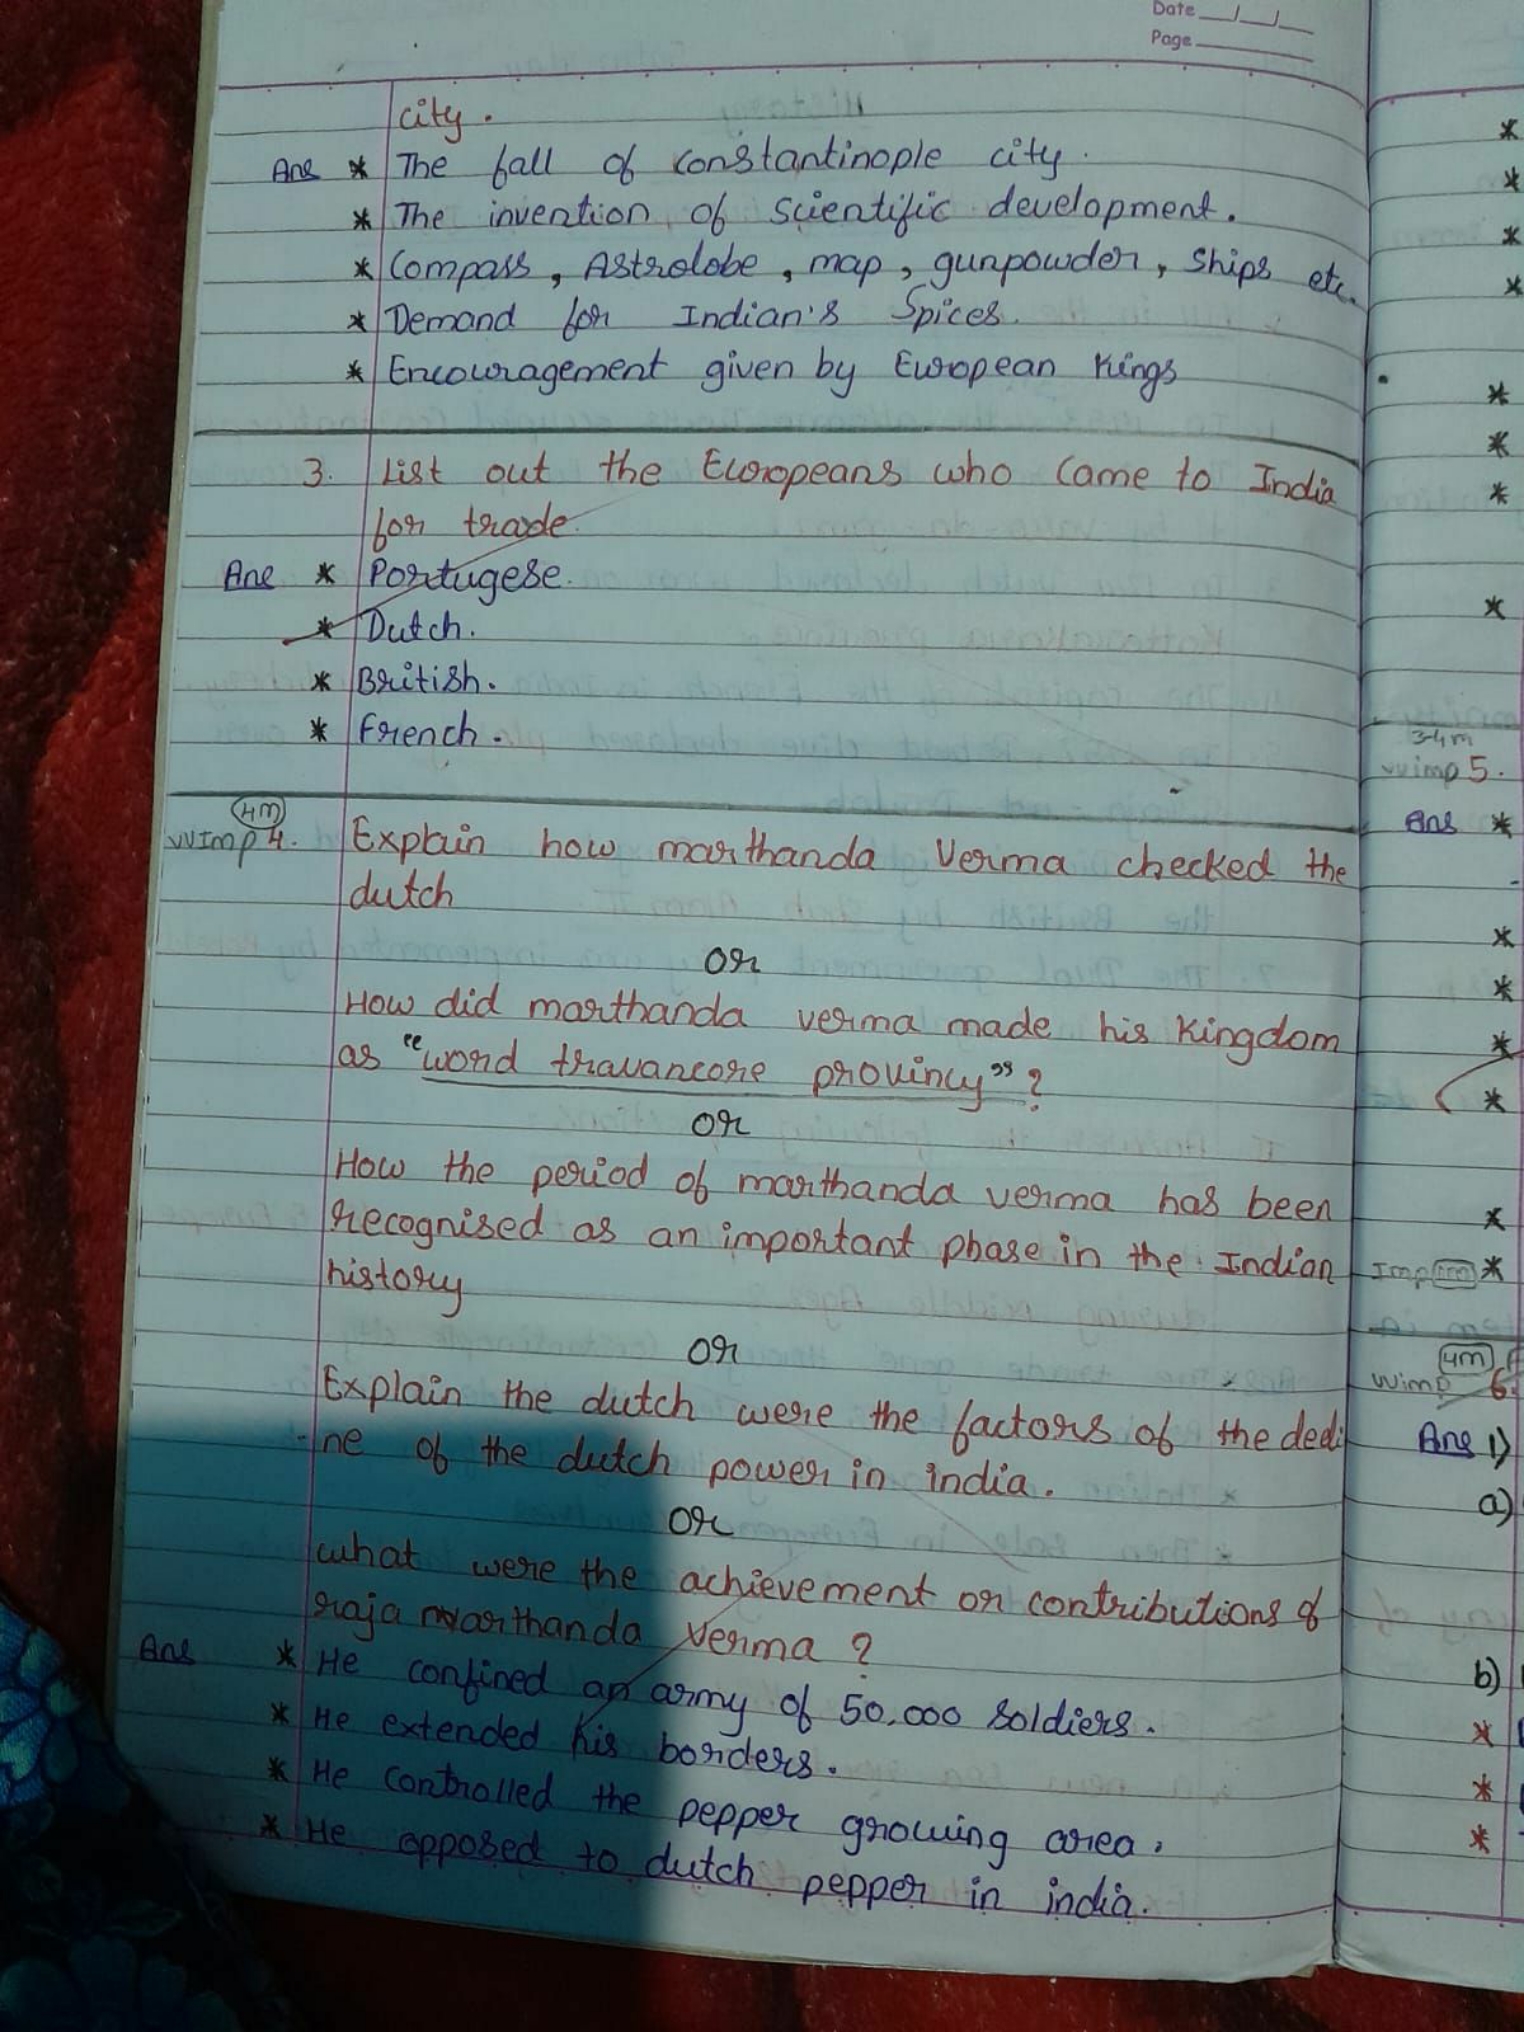 Date __/__/__
Page
city.
Ans * The fall of constantinople city.
* The invention of scientific development.
* Compass, Astrolobe, map, gunpowder, ships etc.
* Demand for Indian's Spices.
* Encouragement given by European Kings
3. List out the Europeans who came to India
for trade.
Ans * Portugese.
* Dutch.
* British.
* French.
4m
VVImp 4. Explain how marthanda Verma checked the
dutch
OR
How did marthanda verma made his Kingdom
as "word travancore provincy"?
OR
How the period of marthanda verma has been
recognised as an important phase in the Indian
history
OR
Explain the dutch were the factors of the decli
-ne of the dutch power in india.
OR
what were the achievement or contributions of
raja marthanda verma ?
Ans * He confined an army of 50,000 soldiers.
* He extended his borders.
* He controlled the pepper growing area.
* He opposed to dutch pepper in india.
*
*
*
*
*
*
*
*
3-4m
vvimp 5.
Ans *
*
*
*
*
*
Imp *
4m
VVimp 6.
Ans 1)
a)
b)
*
*
*